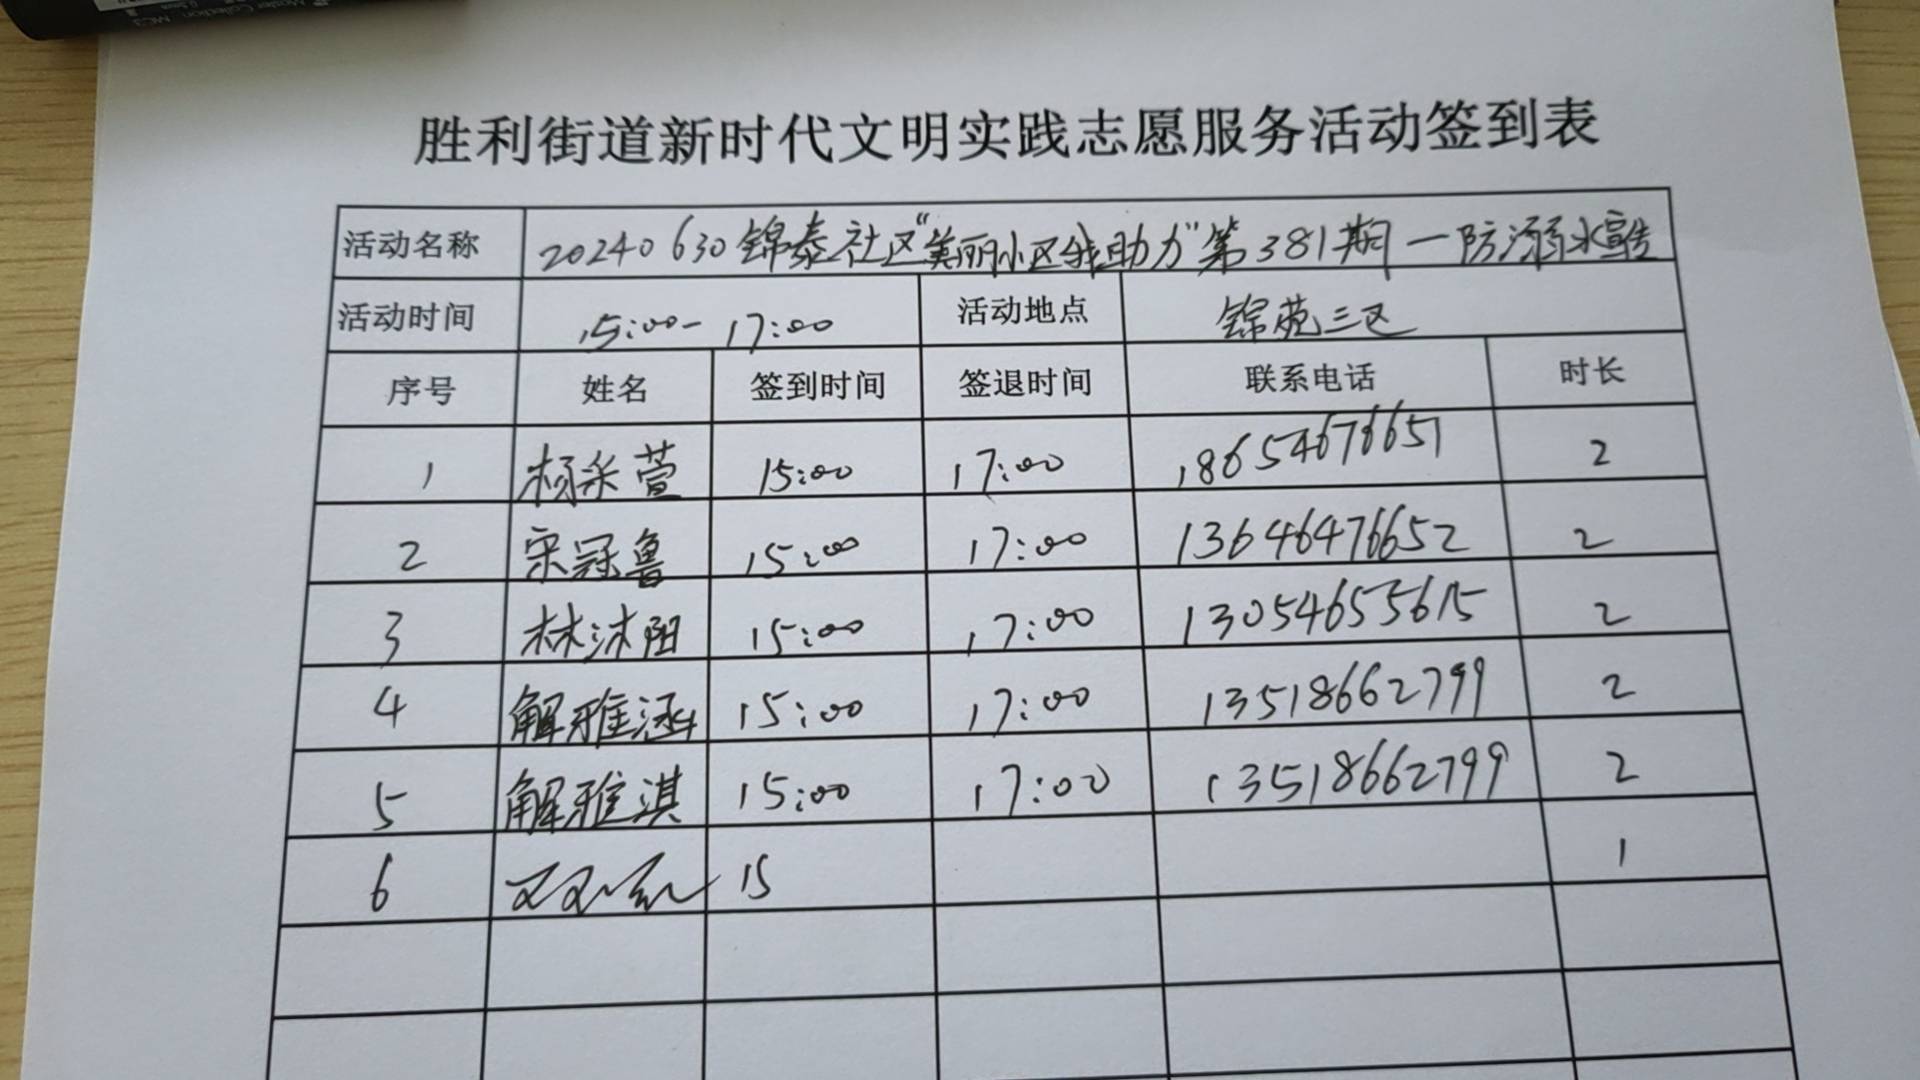 Master Collection MC3
胜利街道新时代文明实践志愿服务活动签到表
活动名称 20240630锦泰社区“美丽小区我助力”第381期—防溺水宣传
活动时间 15:00-17:00 活动地点 锦苑三区
序号 姓名 签到时间 签退时间 联系电话 时长
1 杨采萱 15:00 17:00 18654676651 2
2 宋冠鲁 15:00 17:00 13646476652 2
3 林沐阳 15:00 17:00 13054655615 2
4 解雅涵 15:00 17:00 13518662799 2
5 解雅淇 15:00 17:00 13518662799 2
6 15 1